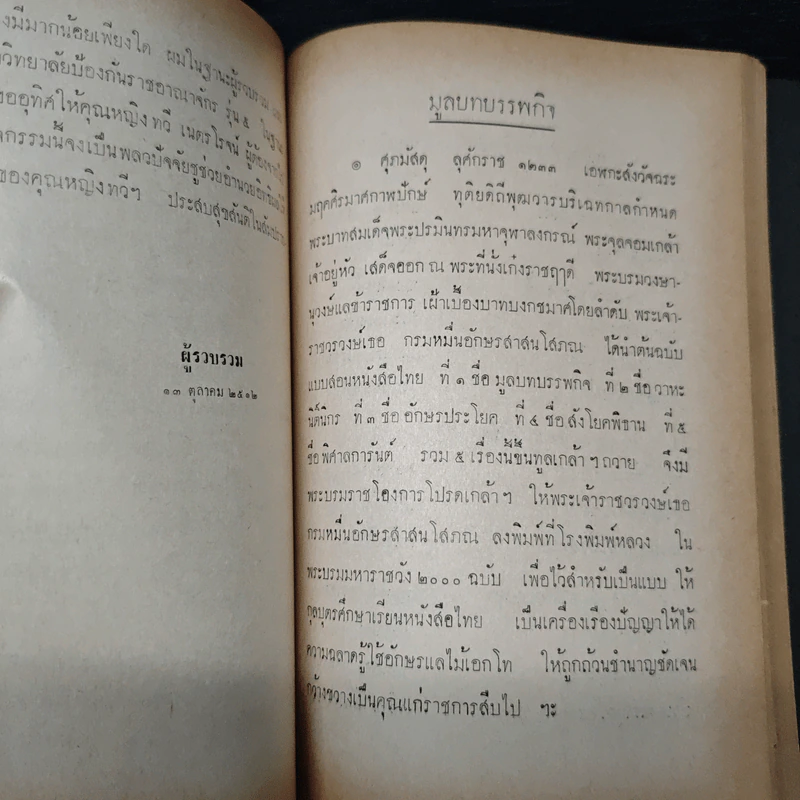 งมีมากน้อยเพียงใด ผมในฐานะผู้รวบรวม
วิทยาลัยป้องกันราชอาณาจักร รุ่น ๕
ขออุทิศให้คุณหญิง ทวี เนตรโรจน์
กรรมนี้จงเป็นพลวปัจจัยชูช่วยอำนวย
ของคุณหญิง ทวีฯ ประสบสุขสันติใน
ผู้รวบรวม
๑๓ ตุลาคม ๒๕๑๒
มูลบทบรรพกิจ
๑ ศุภมัสดุ ลุศักราช ๑๒๓๓ เอพกะสังวัจฉระ
มฤคศิรมาศกาพปักษ์ ทุติยดิถีพุฒวารบริเฉทกาลกำหนด
พระบาทสมเด็จพระปรมินทรมหาจุฬาลงกรณ์ พระจุลจอมเกล้า
เจ้าอยู่หัว เสด็จออก ณ พระที่นั่งเก๋งราชฤๅดี พระบรมวงษา-
นุวงษ์แลข้าราชการ เฝ้าเบื้องบาทบงกชมาศโดยลำดับ พระเจ้า-
ราชวรวงษ์เธอ กรมหมื่นอักษรสาสนโสภณ ได้นำต้นฉบับ
แบบสอนหนังสือไทย ที่ ๑ ชื่อ มูลบทบรรพกิจ ที่ ๒ ชื่อ วาหะ
นิติ์นิกร ที่ ๓ ชื่อ อักษรประโยค ที่ ๔ ชื่อ สังโยคพิธาน ที่ ๕
ชื่อ พิศาลการันต์ รวม ๕ เรื่องนี้ขึ้นทูลเกล้า ฯ ถวาย จึงมี
พระบรมราชโองการโปรดเกล้า ฯ ให้พระเจ้าราชวรวงษ์เธอ
กรมหมื่นอักษรสาสนโสภณ ลงพิมพ์ที่โรงพิมพ์หลวง ใน
พระบรมมหาราชวัง ๒๐๐๐ ฉบับ เพื่อไว้สำหรับเป็นแบบ ให้
กุลบุตรศึกษาเรียนหนังสือไทย เป็นเครื่องเรืองปัญญาให้ได้
ความฉลาดรู้ใช้อักษรแลไม้เอกโท ให้ถูกถ้วนชำนาญชัดเจน
กว้างขวางเป็นคุณแก่ราชการสืบไป ฯะ